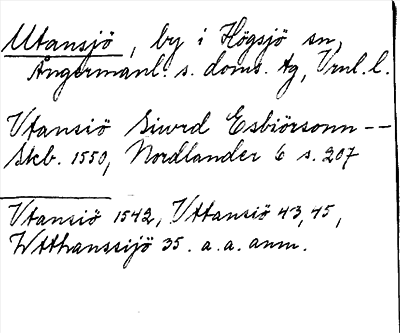 Utansjö, by i Högsjö sn,
Ångermanl. s. doms. tg, Vrnl. l.
Vtansiö Siwrd Esbiörsonn --
Skb. 1550, Nordlander 6 s. 207
Vtansiö 1542, Vttansiö 43, 45,
Wtthanssijö 35. a. a. anm.